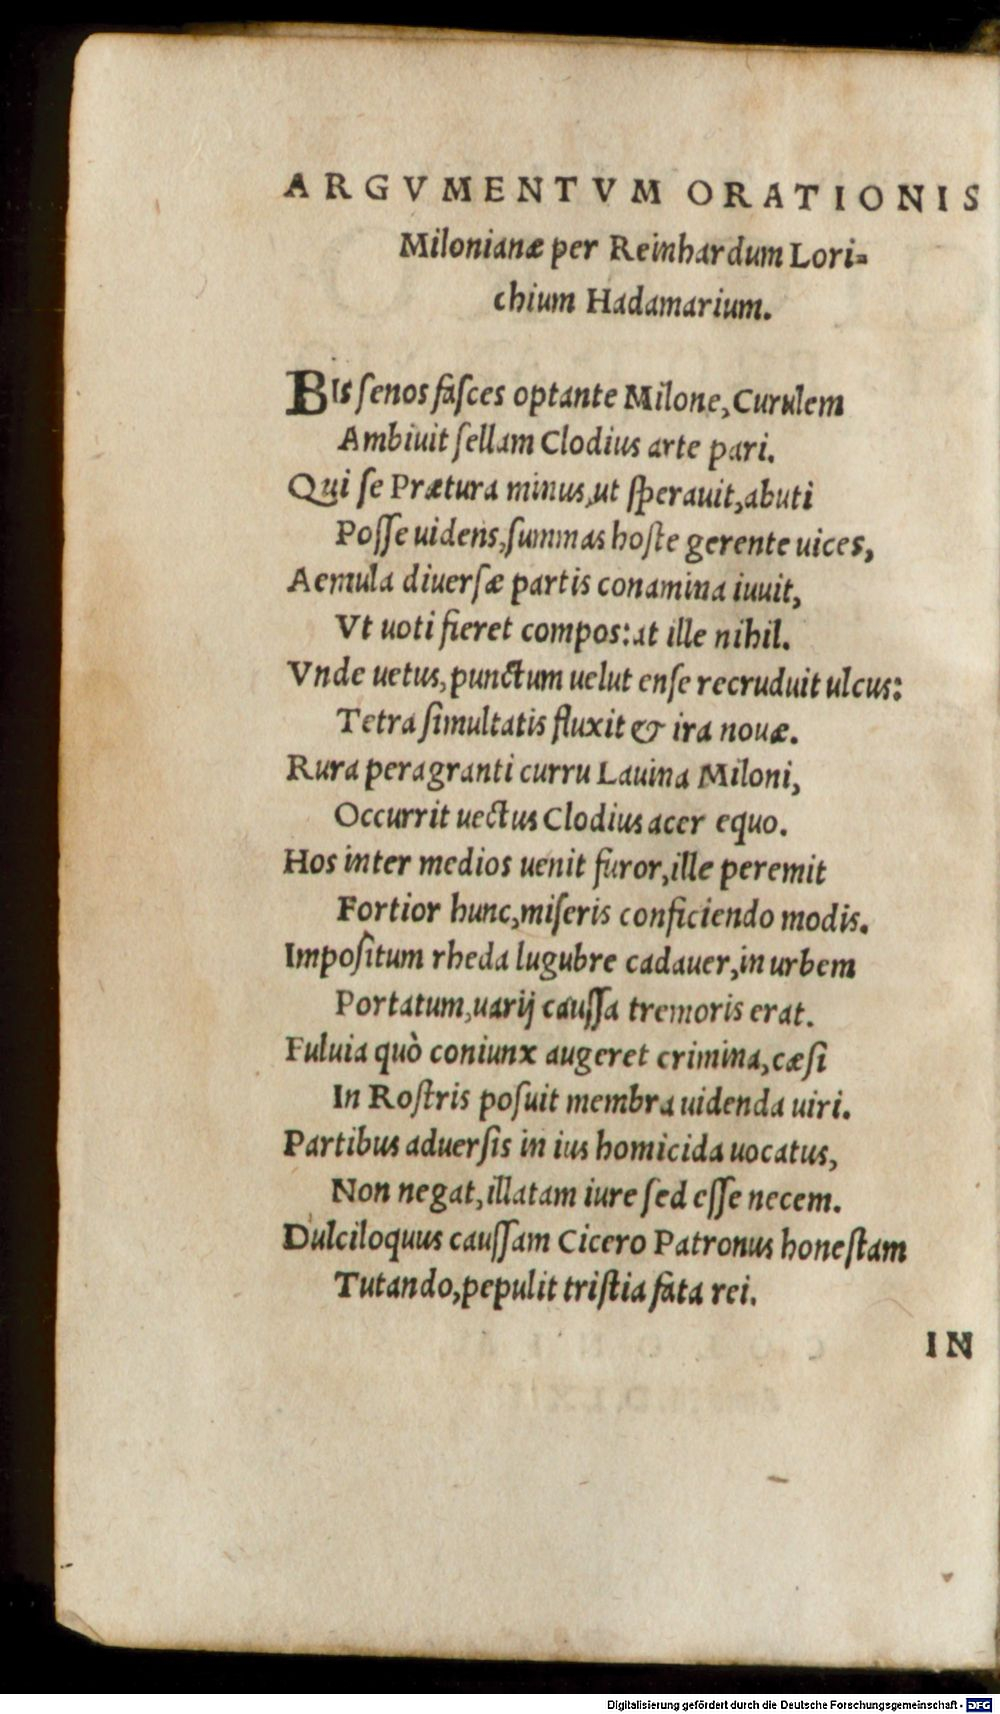 ARGVMENTVM ORATIONIS
Milonianæ per Reinhardum Lori=
chium Hadamarium.
BIs ſenos faſces optante Milone, Curulem
Ambiuit ſellam Clodius arte pari.
Qui ſe Prætura minus, ut ſperauit, abuti
Poſſe uidens, ſummas hoſte gerente uices,
Aemula diuerſæ partis conamina iuuit,
Vt uoti fieret compos: at ille nihil.
Vnde uetus, punctum uelut enſe recruduit ulcus:
Tetra ſimultatis fluxit & ira nouæ.
Rura peragranti curru Lauina Miloni,
Occurrit uectus Clodius acer equo.
Hos inter medios uenit furor, ille peremit
Fortior hunc, miſeris conficiendo modis.
Impoſitum rheda lugubre cadauer, in urbem
Portatum, uarij cauſſa tremoris erat.
Fuluia quò coniunx augeret crimina, cæſi
In Roſtris poſuit membra uidenda uiri.
Partibus aduerſis in ius homicida uocatus,
Non negat, illatam iure ſed eſſe necem.
Dulciloquus cauſſam Cicero Patronus honeſtam
Tutando, pepulit triſtia fata rei.
IN
Digitalisierung gefördert durch die Deutsche Forschungsgemeinschaft - DFG